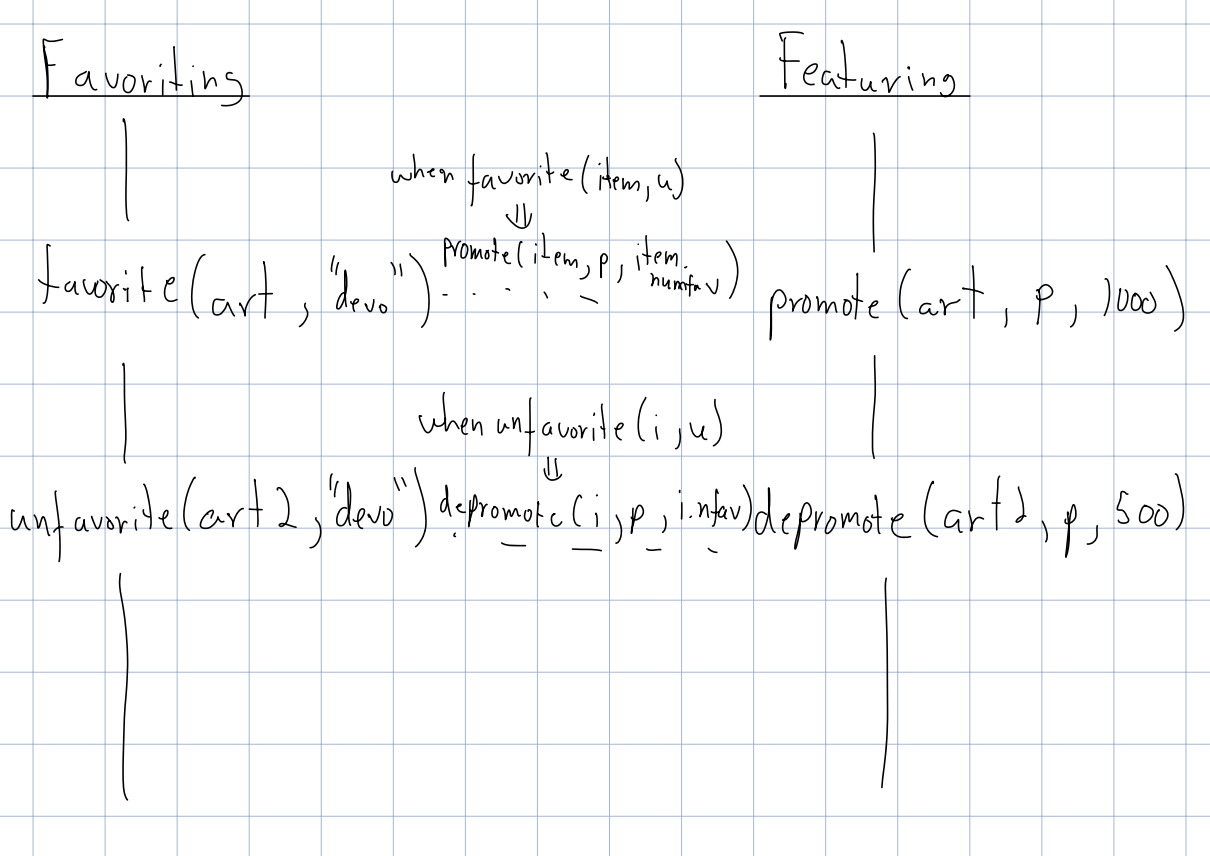 Favoriting
Featuring
when favorite(item, u)
⇓
promote(item, p, item.
numfav)
favorite(art, "devo")
promote(art, p, 1000)
when unfavorite(i, u)
⇓
unfavorite(art2, "devo")
depromote(i, p, i.nfav)
depromote(art2, p, 500)